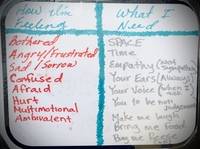 How I'm
Feeling
Bothered
Angry/Frustrated
Sad / Sorrow
Confused
Afraid
Hurt
Multimotional
Ambivalent
What I
Need
SPACE
Time
Empathy (not Sympathy)
Your Ears (Always)
Your Voice (when I ask)
You to be non
judgemental
Make me laugh
Bring me food
Buy me